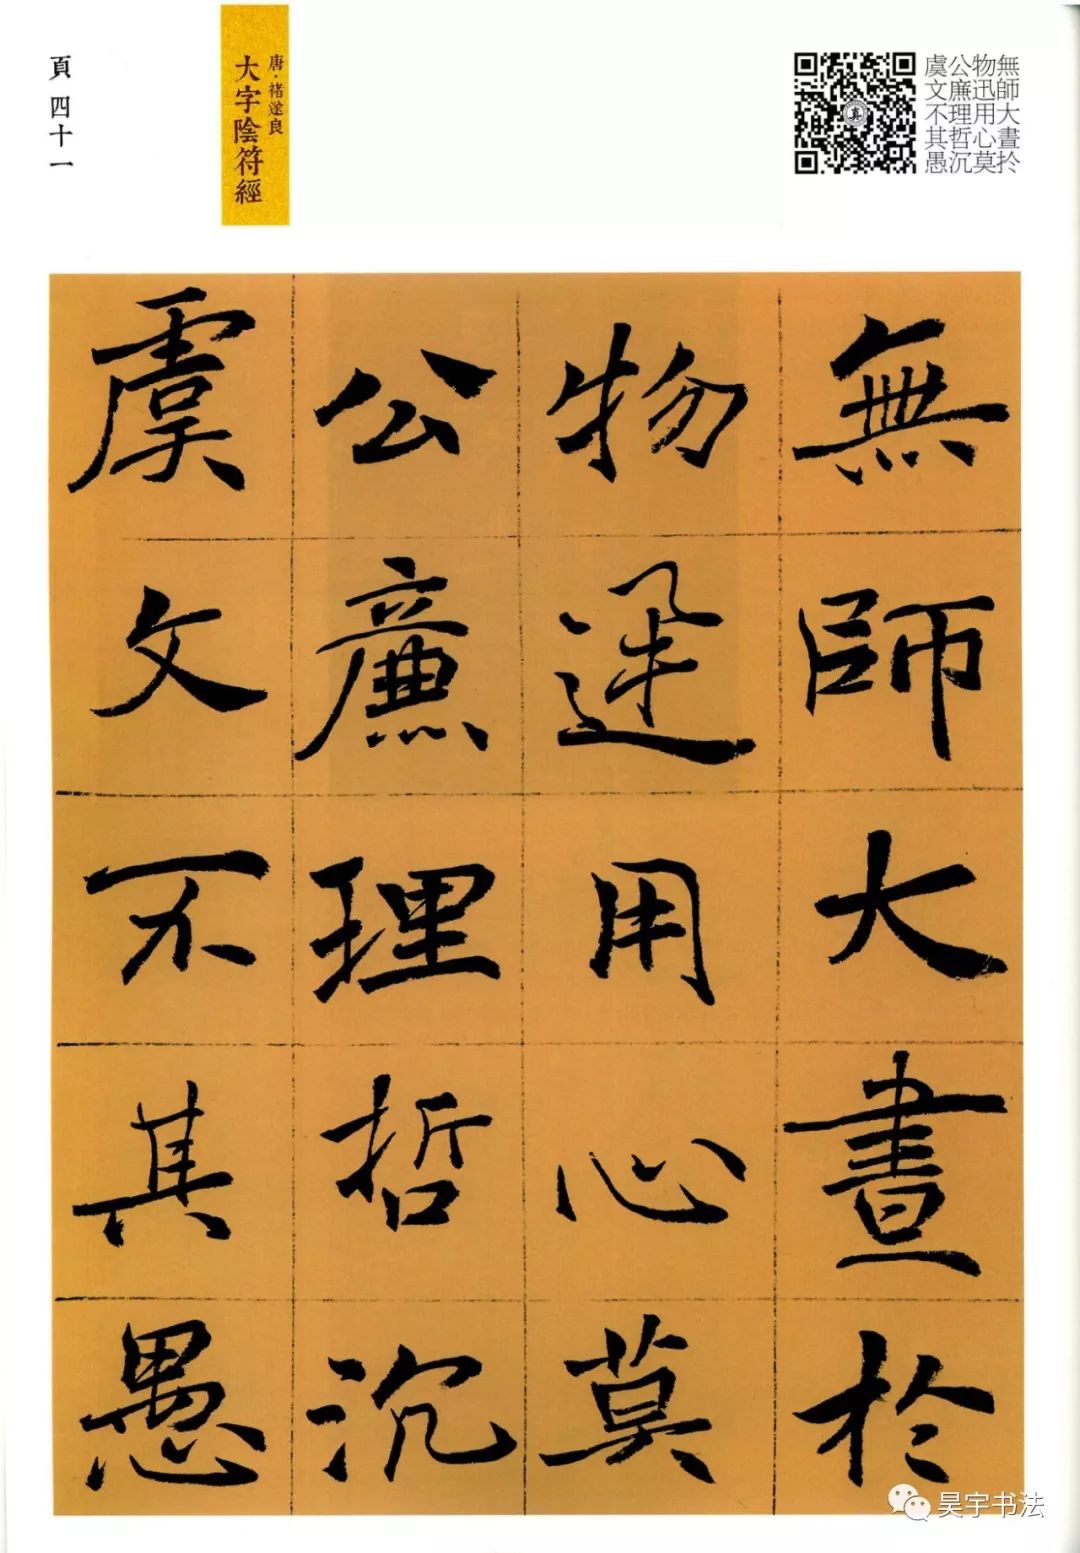 頁 四十一
唐·褚遂良
大字陰符經
無師大晝扵
物迅用心莫
公廉理哲沉
虞文不其愚
無師大晝扵
物迅用心莫
公廉理哲沉
虞文不其愚
昊宇书法